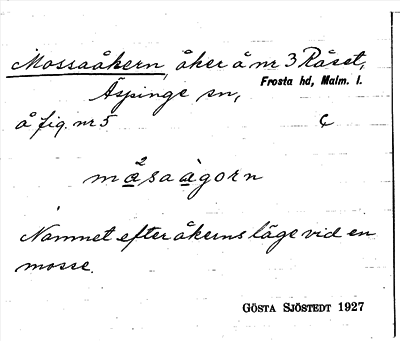 Mossaåkern, åker å nr 3 Råset,
Äspinge sn, Frosta hd, Malm. l.
å fig. nr 5
Namnet efter åkerns läge vid en
mosse.
GÖSTA SJÖSTEDT 1927